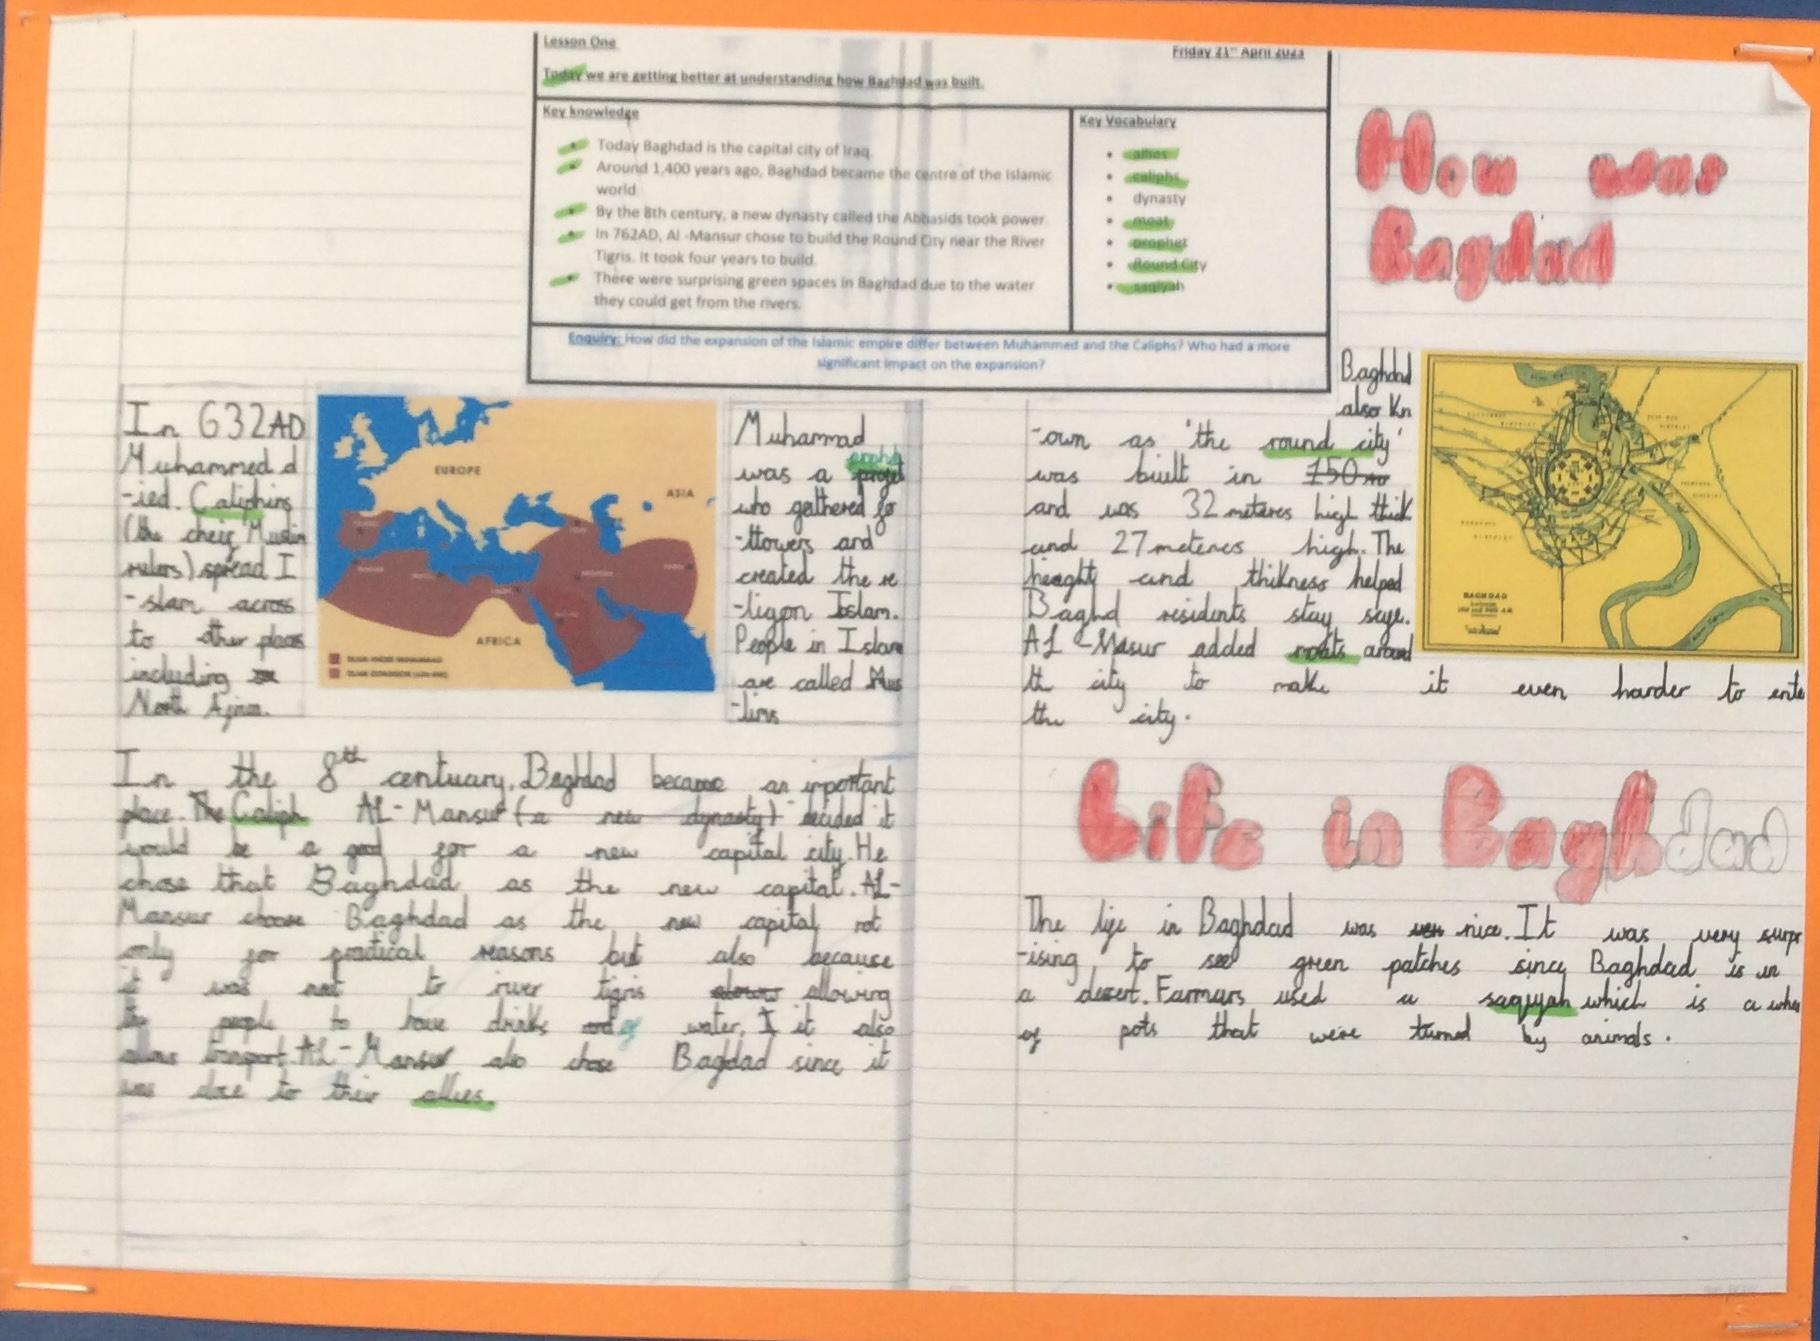 Lesson One
Friday 21st April 2023
Today we are getting better at understanding how Baghdad was built.
Key knowledge
• Today Baghdad is the capital city of Iraq.
• Around 1,400 years ago, Baghdad became the centre of the Islamic
world.
• By the 8th century, a new dynasty called the Abbasids took power.
• In 762AD, Al -Mansur chose to build the Round City near the River
Tigris. It took four years to build.
• There were surprising green spaces in Baghdad due to the water
they could get from the rivers.
Key Vocabulary
• allies
• caliphs
• dynasty
• moat
• prophet
• Round City
• saqiyah
Enquiry: How did the expansion of the Islamic empire differ between Muhammed and the Caliphs? Who had a more
significant impact on the expansion?
In 632AD
Muhammed d
-ied. Caliphins
(the cheif Muslim
rulers) spread I
-slam across
to other places
including
North Africa.
EUROPE
ASIA
AFRICA
Muhammad
was a
who gathered fo
-llowers and
created the re
-ligon Islam.
People in Islam
are called Mus
-lims
In the 8th centuary, Baghdad became an important
place. The Caliph AL-Mansur (a new dynasty) decided it
would be a good for a new capital city. He
chose that Baghdad as the new capital. AL-
Mansur choose Baghdad as the new capital not
only for practical reasons but also because
it was next to river tigris allowing
people to have drinks of water, it also
allows transport. AL-Mansur also chose Bagdad since it
was close to their allies.
How was
Bagdad
Baghdad
also Kn
-own as 'the round city'
was built in 750AD
and was 32 meteres high thick
and 27 meteres high. The
heaghty and thikness helped
Baghd residents stay safe.
AL-Masur added moats around
th city to make it even harder to ente
the city.
BAGHDAD
Life in Baghdad
The life in Baghdad was very nice. It was very surpr
-ising to see green patches since Baghdad is in
a desert. Farmars used a saqiyah which is a whe
of pots that were turned by animals.